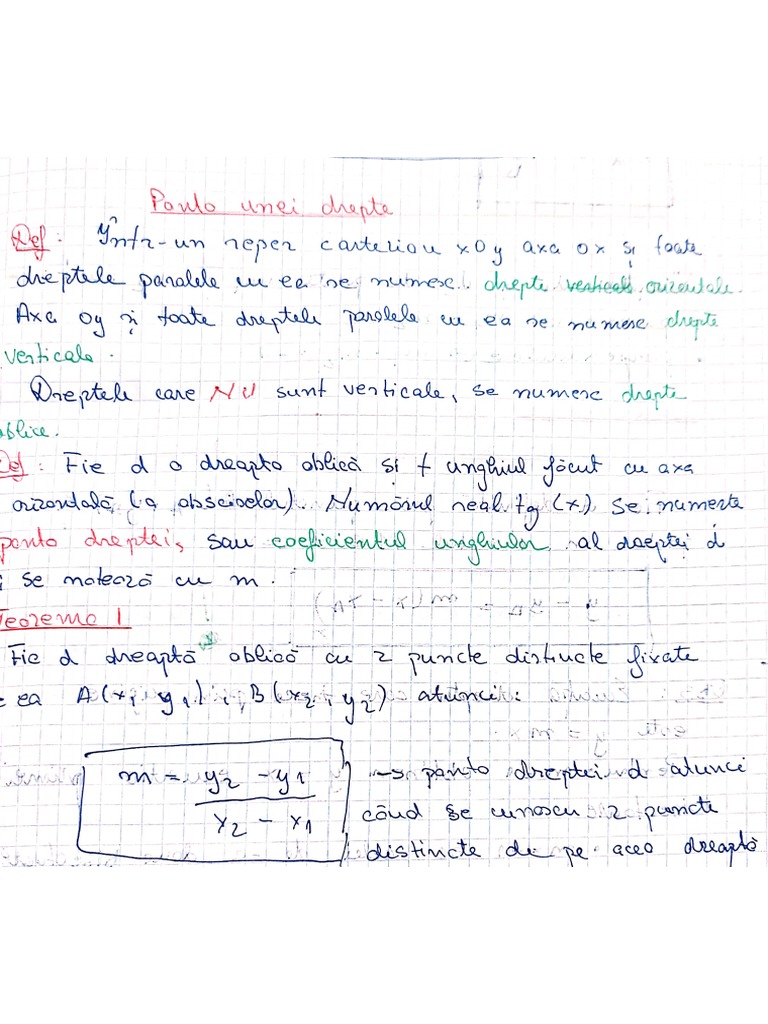 Panta unei drepte
Def: Într-un reper cartezian xOy axa ox și toate
dreptele paralele cu ea se numesc drepte verticale orizontale.
Axa oy și toate dreptele paralele cu ea se numesc drepte
verticale.
Dreptele care NU sunt verticale, se numesc drepte
oblice.
Def: Fie d o dreaptă oblică și unghiul făcut cu axa
orizontală (a absciselor). Numărul real tg (x) se numește
panta dreptei, sau coeficientul unghiular al dreptei d
și se notează cu m.
Teorema 1
Fie d dreaptă oblică cu 2 puncte distincte fixate
pe ea A(x₁ y₁), B(x₂, y₂) atunci:
m = \frac{y₂ - y₁}{x₂ - x₁} → panta dreptei d atunci
când se cunosc 2 puncte
distincte de pe acea dreaptă